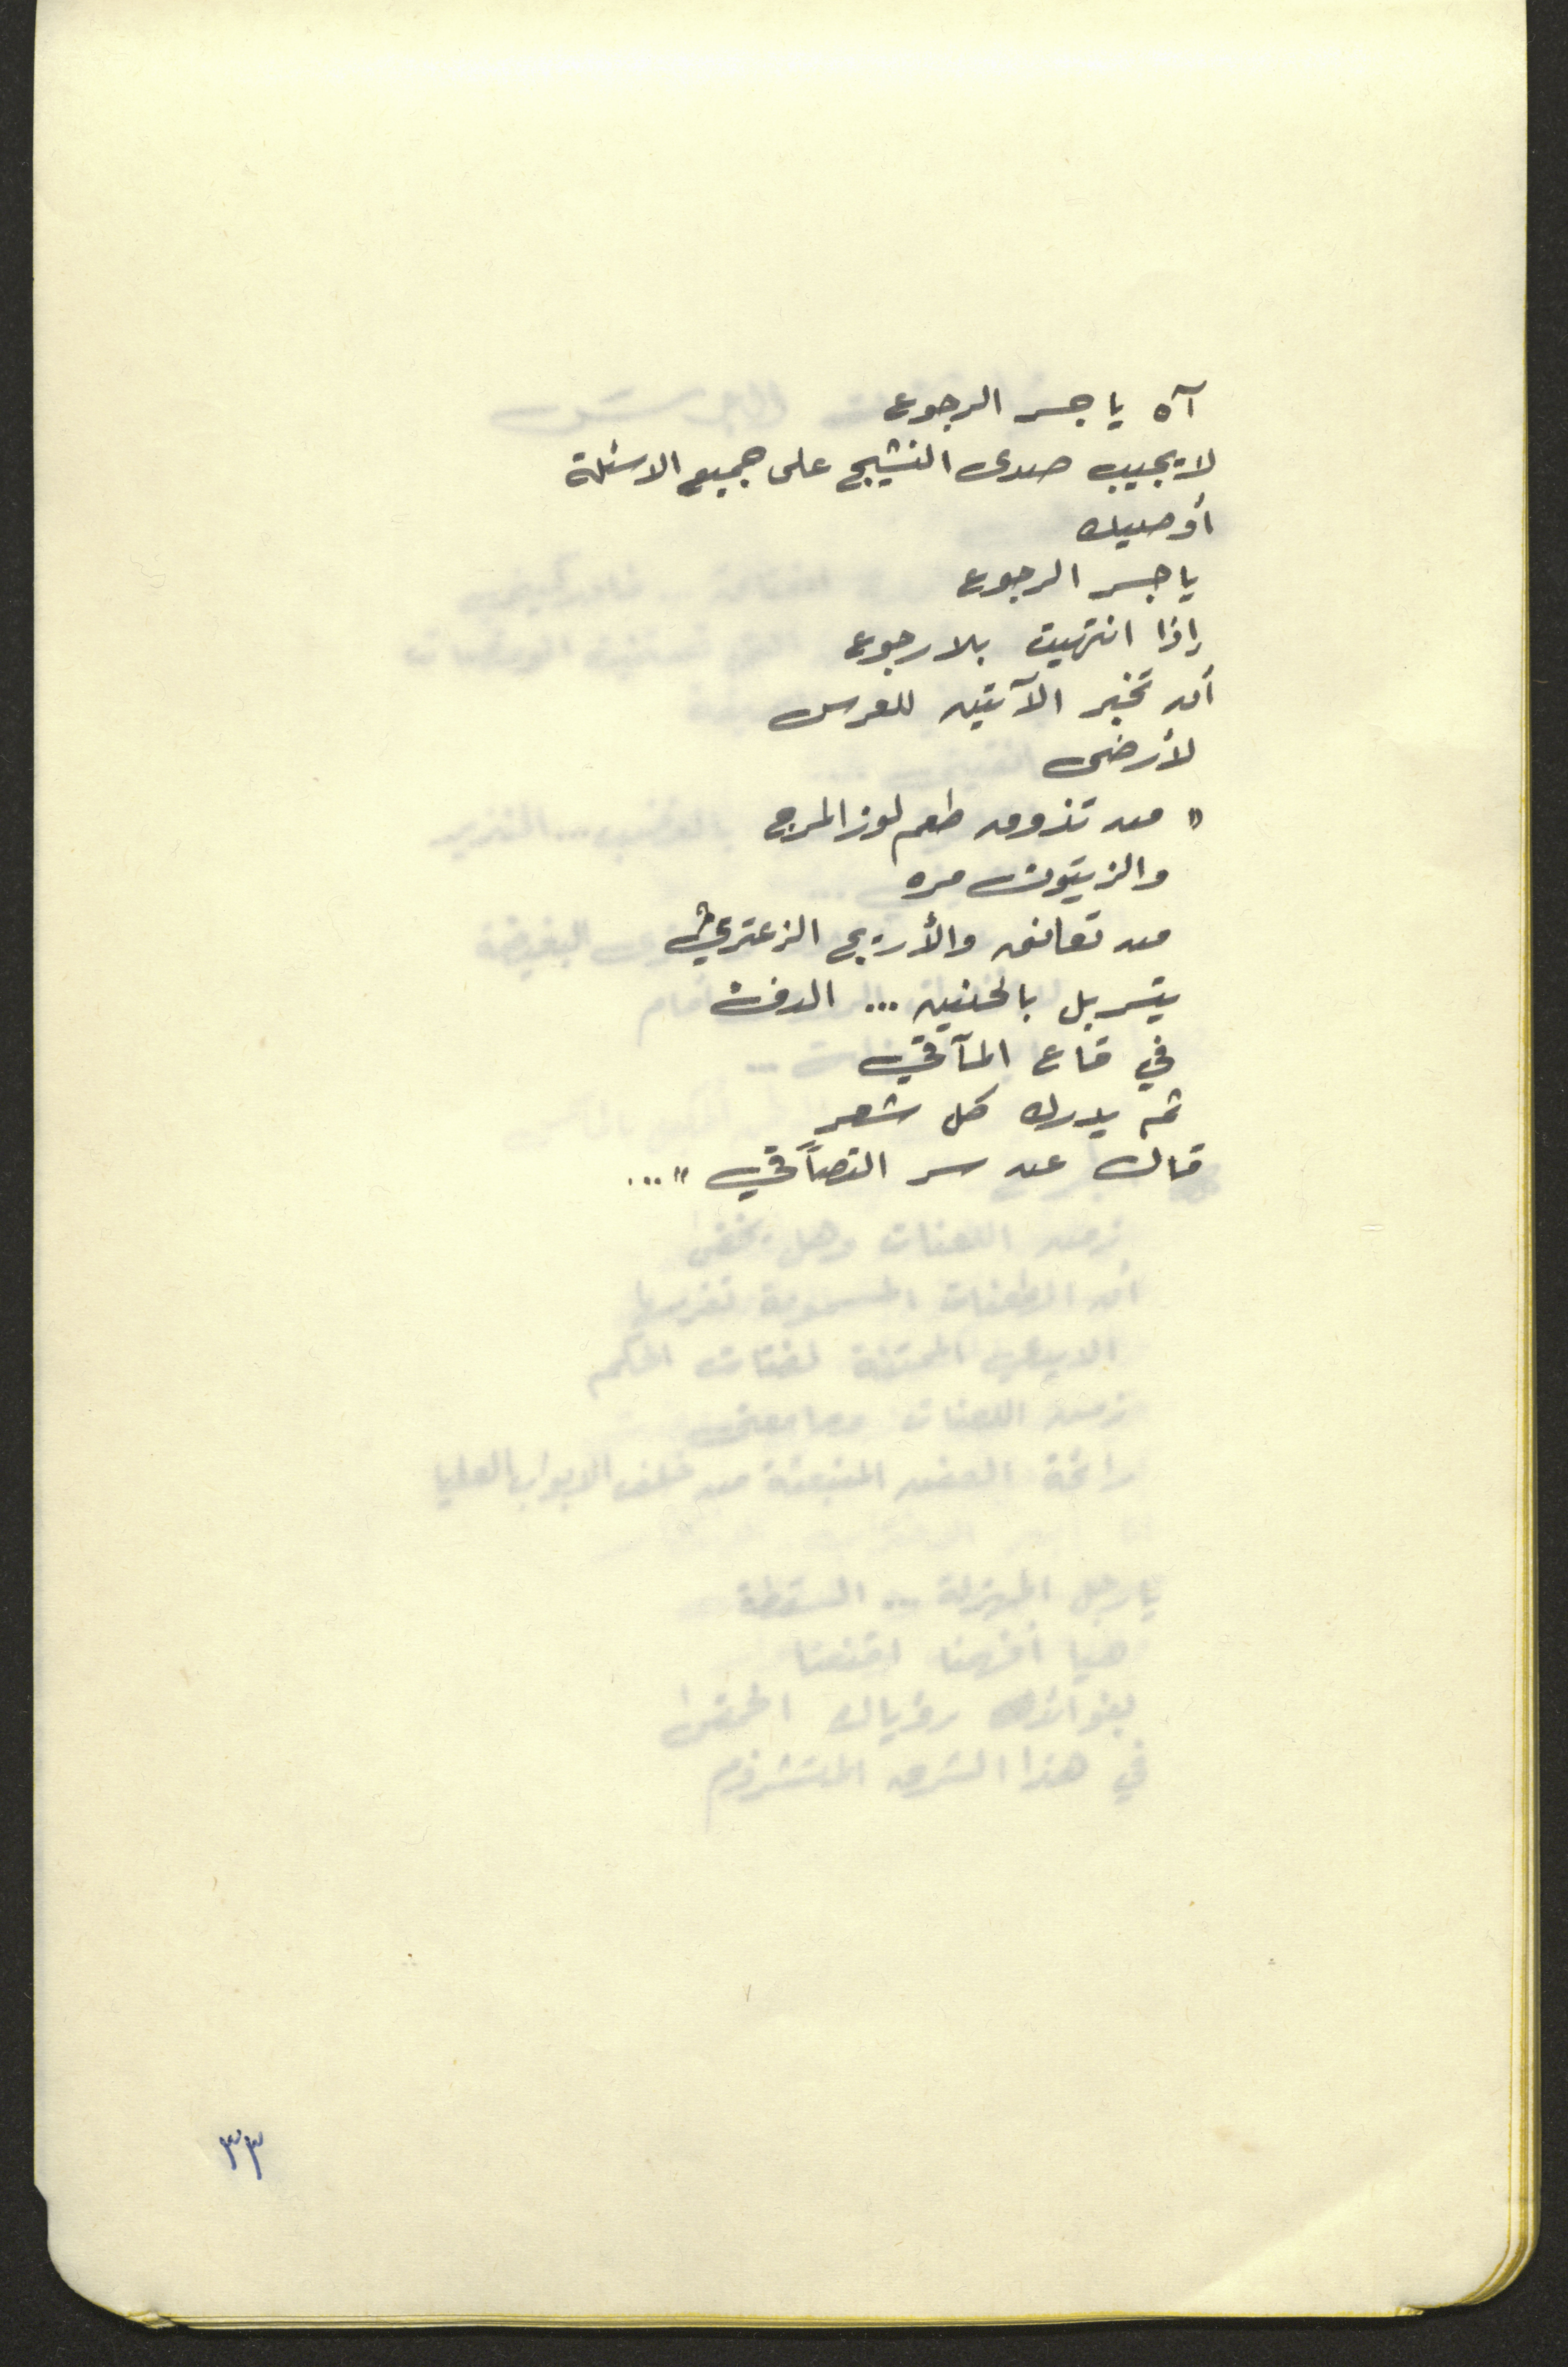 آه يا جسر الرجوع
لا يجيب صدى النشيج على جميع الاسئلة
أوصيك
يا جسر الرجوع
إذا انتهيت بلا رجوع
أن تخبر الآتين للعرس
لأرضى
" من تذوق طعم لوز المرج
والزيتون مره
من تعانق والأريج الزعتري
يتسربل بالحنين ... الدفء
في قاع المآقي
ثم يدرك كل شعر
قال عن سر التصاقي " ...
٣٣